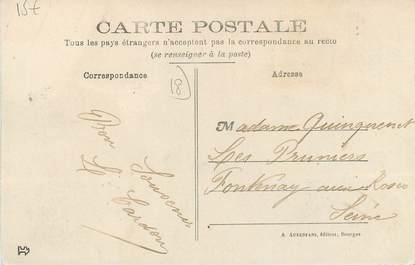 15€
CARTE POSTALE
Tous les pays étrangers n'acceptent pas la correspondance au recto
(se renseigner à la poste)
Correspondance
Bon Souvenir
Adresse
Madame
Les Pruniers
Fontenay aux Roses
Seine
A. AUXENFANS, éditeur, Bourges